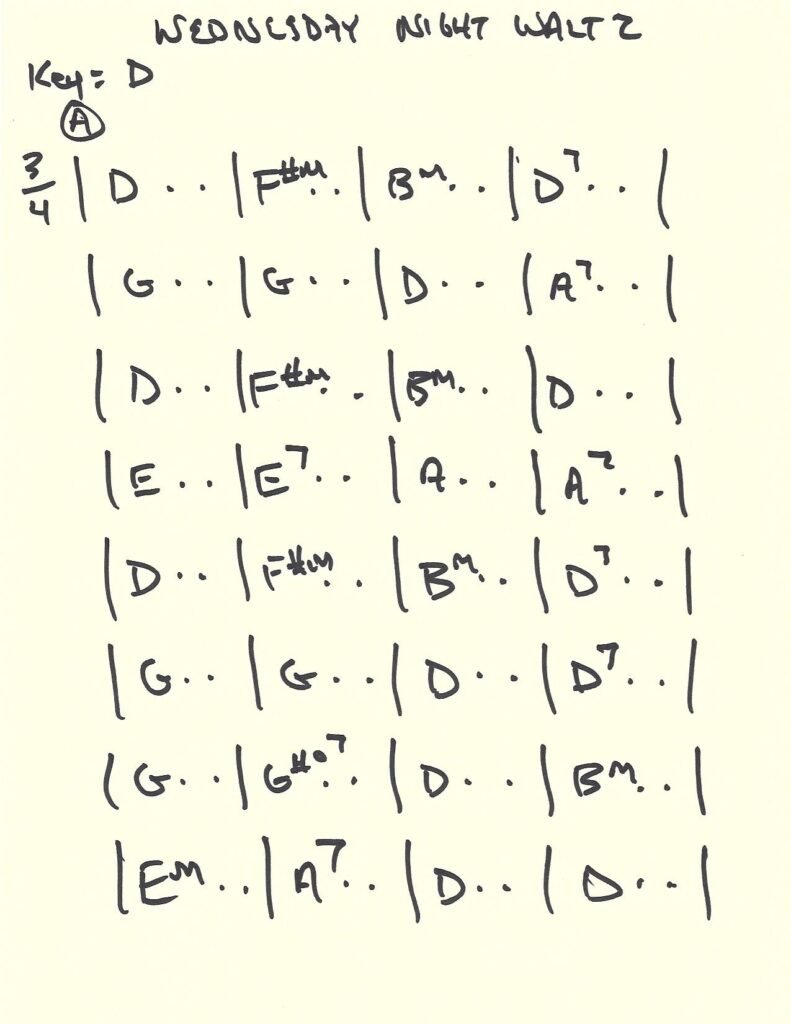 WEDNESDAY NIGHT WALTZ
Key = D
A
3/4 | D . . | F#m . . | Bm . . | D7 . . |
| G . . | G . . | D . . | A7 . . |
| D . . | F#m . . | Bm . . | D . . |
| E . . | E7 . . | A . . | A7 . . |
| D . . | F#m . . | Bm . . | D7 . . |
| G . . | G . . | D . . | D7 . . |
| G . . | G#o7 . . | D . . | Bm . . |
| Em . . | A7 . . | D . . | D . . |